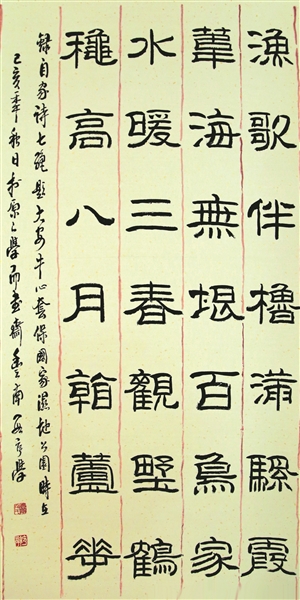 漁歌伴櫓滿霞
葦海無垠百鳥家
水暖三春觀野鶴
穐高八月蘆花
錄自家詩七絕題大安牛心套保國家濕地公園時在
己亥年秋日於原之學而畫齋南學